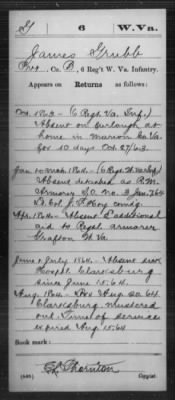 G 6 W.Va.
James Grubb
Pvt., Co. B, 6 Reg't W. Va. Infantry.
Appears on Returns as follows:
Oct. 1863 (6 Regt. Va. Inf.)
Absent on furlough at
home in Marion Co. Va.
for 10 days Oct. 27/63
Jan to Mch. 1864 (6 Regt. W. Va. Inf.)
Absent detached as R.M.
Armorer S.O. No. 3 Jan. 7/64
Lt. Col. J. F. Hoy comdg
Apr. 1864 Absent additional
aid to Regt. armorer
Grafton W. Va
June & July 1864. Absent sick
Hospl. Clarksburg
since June 15. 64.
Aug. 1864 Aug 20. 64
Clarksburg mustered
out. Time of service
expired Aug 15. 64
Book mark:
Thornton
Copyist.